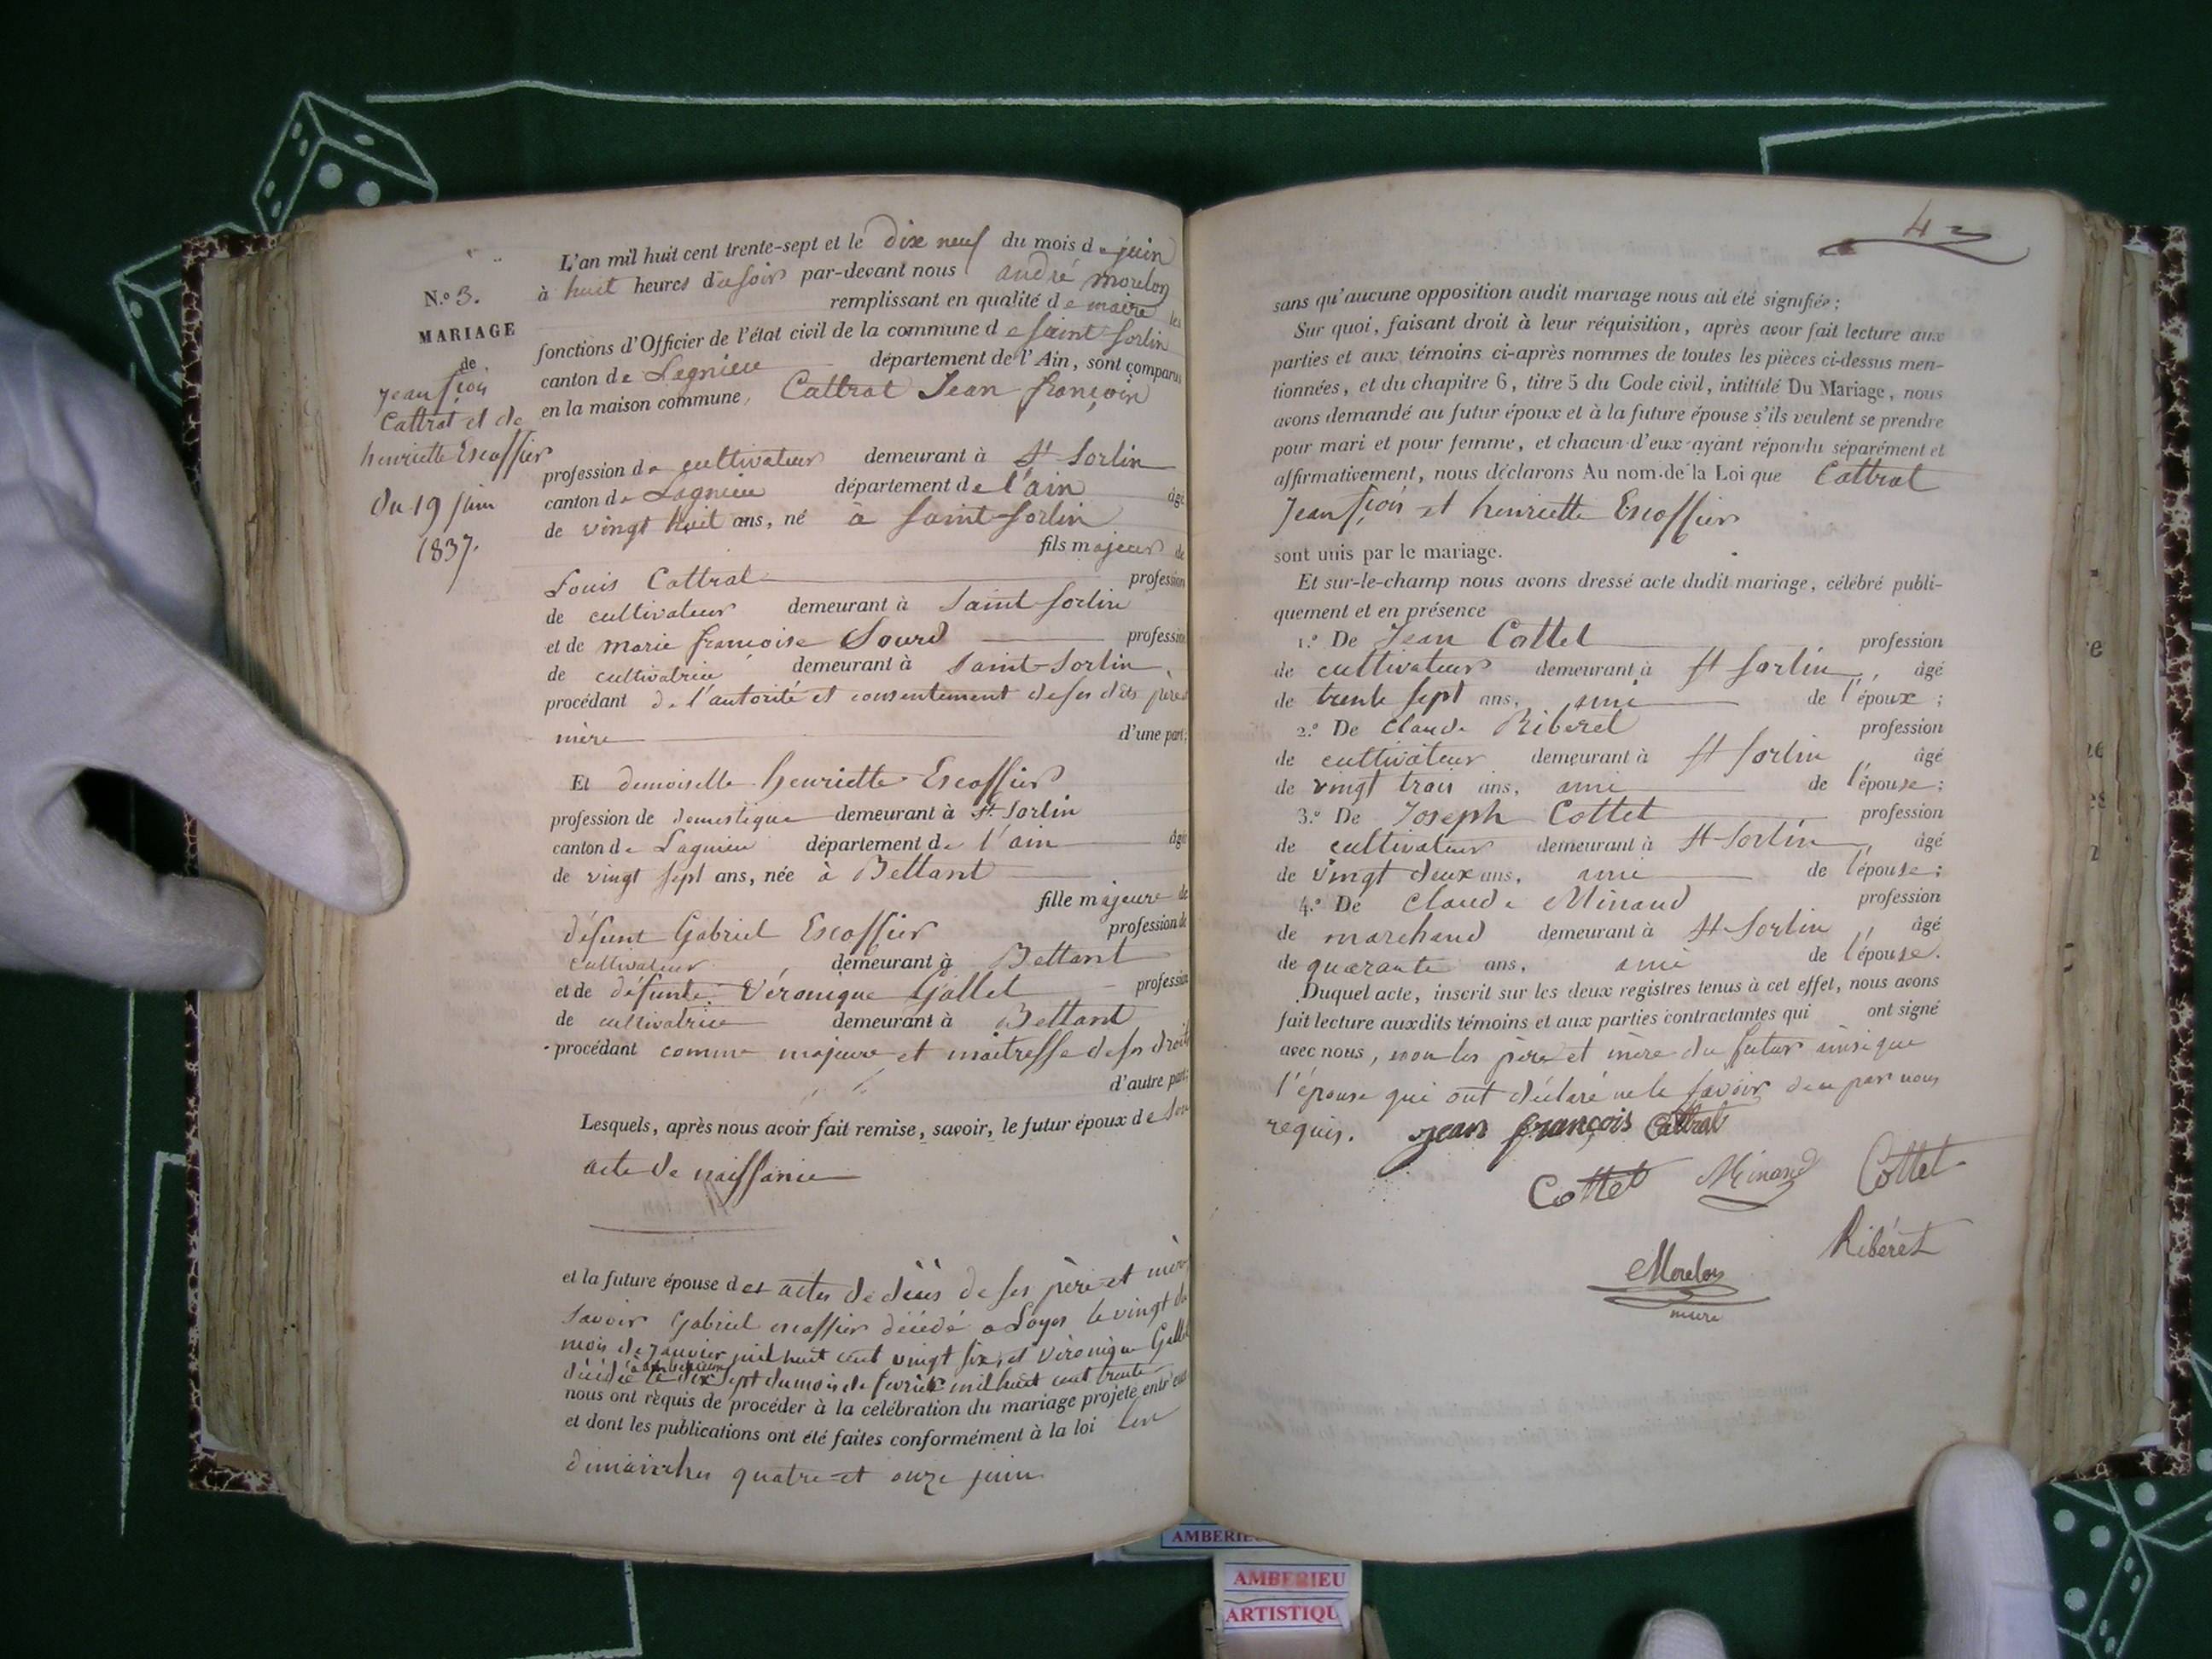 N.º 3.
MARIAGE
de
Jean fçois
Cattrat et de
henriette Escoffier
du 19 juin
1837.
L'an mil huit cent trente-sept et le dix neuf du mois de juin
à huit heures du soir par-devant nous andré morelon
remplissant en qualité de maire les
fonctions d'Officier de l'état civil de la commune de saint sorlin
canton de Lagnieu département de l'Ain, sont comparus
en la maison commune, Cattrat Jean françois
profession de cultivateur demeurant à St Sorlin
canton de Lagnieu département de l'ain âgé
de vingt huit ans, né à saint sorlin
fils majeur de
Louis Cattrat profession
de cultivateur demeurant à saint sorlin
et de marie françoise Sourd profession
de cultivatrice demeurant à saint-sorlin
procédant de l'autorité et consentement de ses dits père et
mère d'une part;
Et demoiselle henriette Escoffier
profession de domestique demeurant à St. Sorlin
canton de Lagnieu département de l'ain âgée
de vingt sept ans, née à Bettant
fille majeure de
défunt Gabriel Escoffier profession de
cultivateur demeurant à Bettant
et de défunte Véronique Gallet profession
de cultivatrice demeurant à Bettant
procédant comme majeure et maitresse de ses droits
d'autre part;
Lesquels, après nous avoir fait remise, savoir, le futur époux de son
acte de naissance
et la future épouse des actes de décès de ses père et mère
savoir Gabriel escoffier décédé a Loyes le vingt du
mois de janvier mil huit cent vingt six, et Véronique Gallet
décédée à amberieux le dix sept du mois de fevrier mil huit cent trente
nous ont requis de procéder à la célébration du mariage projeté entr'eux
et dont les publications ont été faites conformément à la loi les
dimanches quatre et onze juin
42
sans qu'aucune opposition audit mariage nous ait été signifiée;
Sur quoi, faisant droit à leur réquisition, après avoir fait lecture aux
parties et aux témoins ci-après nommes de toutes les pièces ci-dessus men-
tionnées, et du chapitre 6, titre 5 du Code civil, intitulé Du Mariage, nous
avons demandé au futur époux et à la future épouse s'ils veulent se prendre
pour mari et pour femme, et chacun d'eux ayant répondu séparément et
affirmativement, nous déclarons Au nom de la Loi que Cattrat
Jean fçois et henriette Escoffier
sont unis par le mariage.
Et sur-le-champ nous avons dressé acte dudit mariage, célébré publi-
quement et en présence
1.º De Jean Cottet profession
de cultivateur demeurant à St Sorlin, âgé
de trente sept ans, ami de l'époux;
2.º De Claude Riberet profession
de cultivateur demeurant à St Sorlin, âgé
de vingt trois ans, ami de l'épouse;
3.º De Joseph Cottet profession
de cultivateur demeurant à St Sorlin, âgé
de vingt deux ans, ami de l'épouse;
4.º De Claude Minaud profession
de marchand demeurant à St Sorlin, âgé
de quarante ans, ami de l'épouse.
Duquel acte, inscrit sur les deux registres tenus à cet effet, nous avons
fait lecture auxdits témoins et aux parties contractantes qui ont signé
avec nous, non les père et mère du futur ainsi que
l'épouse qui ont déclaré ne le savoir de ce par nous
requis. Jean françois Cattrat
Cottet Minaud Cottet
Ribéret
Morelon
maire
AMBERIEU
ARTISTIQU